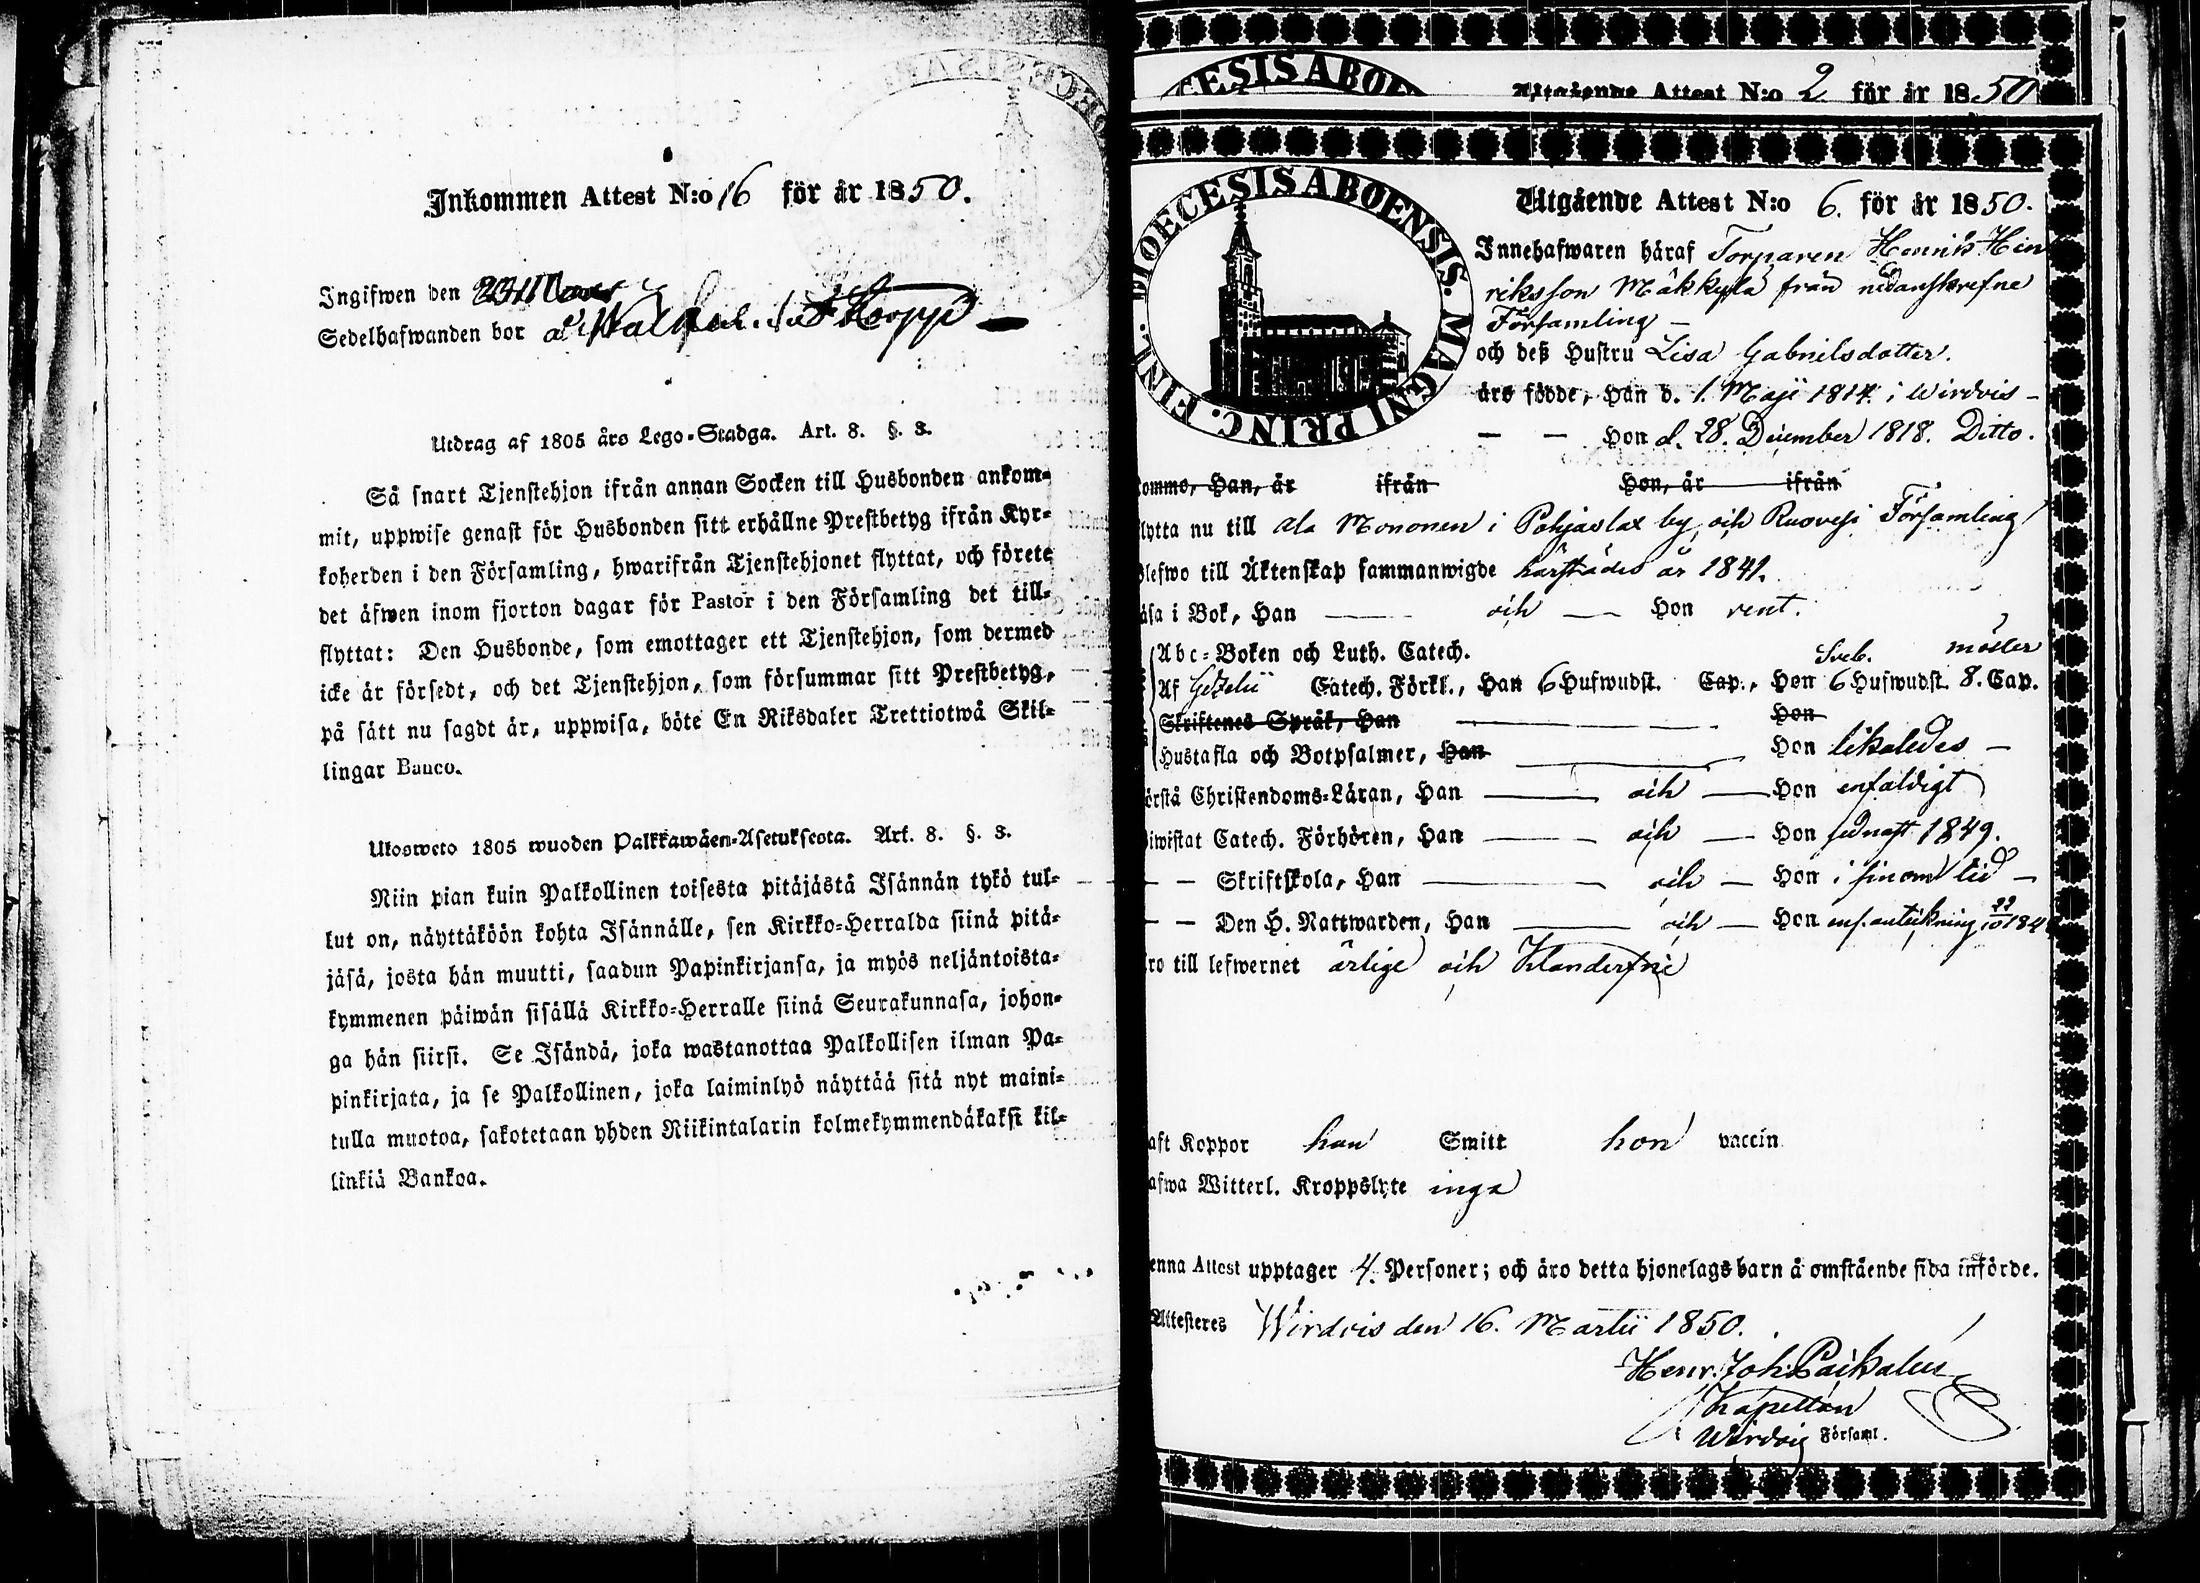 Inkommen Attest N:o 16 för år 1850.
Ingifwen den
Sedelhafwanden bor
Utdrag af 1805 års Lego-Stadga. Art. 8. §. 3.
Så snart Tjenstehjon ifrån annan Socken till Husbonden ankom-
mit, uppwise genast för Husbonden sitt erhållne Prestbetyg ifrån Kyr-
koherden i den Församling, hwarifrån Tjenstehjonet flyttat, och förete
det äfwen inom fjorton dagar för Pastor i den Församling det till-
flyttat: Den Husbonde, som emottager ett Tjenstehjon, som dermed
icke är försedt, och det Tjenstehjon, som försummar sitt Prestbetyg,
på sätt nu sagdt är, uppwisa, böte En Riksdaler Trettiotwå Skil-
lingar Banco.
Ulosweto 1805 wuoden Palkkawäen-Asetuksesta. Art. 8. §. 3.
Niin pian kuin Palkollinen toisesta pitäjästä Isännän tykö tul-
lut on, näyttäköön kohta Isännälle, sen Kirkko-Herralda siinä pitä-
jäsä, josta hän muutti, saadun Papinkirjansa, ja myös neljäntoista-
kymmenen päiwän sisällä Kirkko-Herralle siinä Seurakunnasa, johon-
ga hän siirsi. Se Isändä, joka wastanottaa Palkollisen ilman Pa-
pinkirjata, ja se Palkollinen, joka laiminlyö näyttää sitä nyt maini-
tulla muotoa, sakotetaan yhden Riikintalarin kolmekymmendäkaksi kil-
linkiä Bankoa.
CESIS ABOE
Utgående Attest N:o 2 för år 1850
DIOECESIS ABOENSIS. MAGNI PRINC. FINL.
Utgående Attest N:o 6. för år 1850.
Innehafwaren häraf Torparen Henrik Hin
riksson Mäkkylä från nedanskrefne
Församling –
och deß Hustru Lisa Gabrielsdotter.
äro födde, Han d. 1. Maji 1814. i Wirdois –
— — Hon d. 28. December 1818. Ditto.
komme, Han, år ifrån Hon, år ifrån
flytta nu till Ala Mononen i Pohjaslax by, och Ruovesi Församling
blefwo till Äktenskap sammanwigde härstädes år 1841.
läsa i Bok, Han — och — Hon rent.
Abc-Boken och Luth. Catech. Sveb. möster
Af Gezelii Catech. Förkl., Han 6 Hufwudst. Cap., Hon 6 Hufwudst. 8. Cap.
Skriftenes Språk, Han — Hon
Hustafla och Botpsalmer, Han — Hon likaledes –
förstå Christendoms-Läran, Han — och — Hon enfaldigt
biwistat Catech. Förhören, Han — och — Hon sednast 1849.
— — Skriftskola, Han — och — Hon i sinom tid –
— — Den H. Nattwarden, Han — och — Hon enl. anteckning
äro till lefwernet ärlige och Klanderfrie
haft Koppor han Smitt hon vaccin
hafwa Witterl. Kroppslyte inga
Denna Attest upptager 4. Personer; och äro detta hjonelags barn å omstående sida införde.
Attesteres Wirdois den 16. Martii 1850.
Henr. Joh. Paikalen
Kapellan
Wirdois Församl.